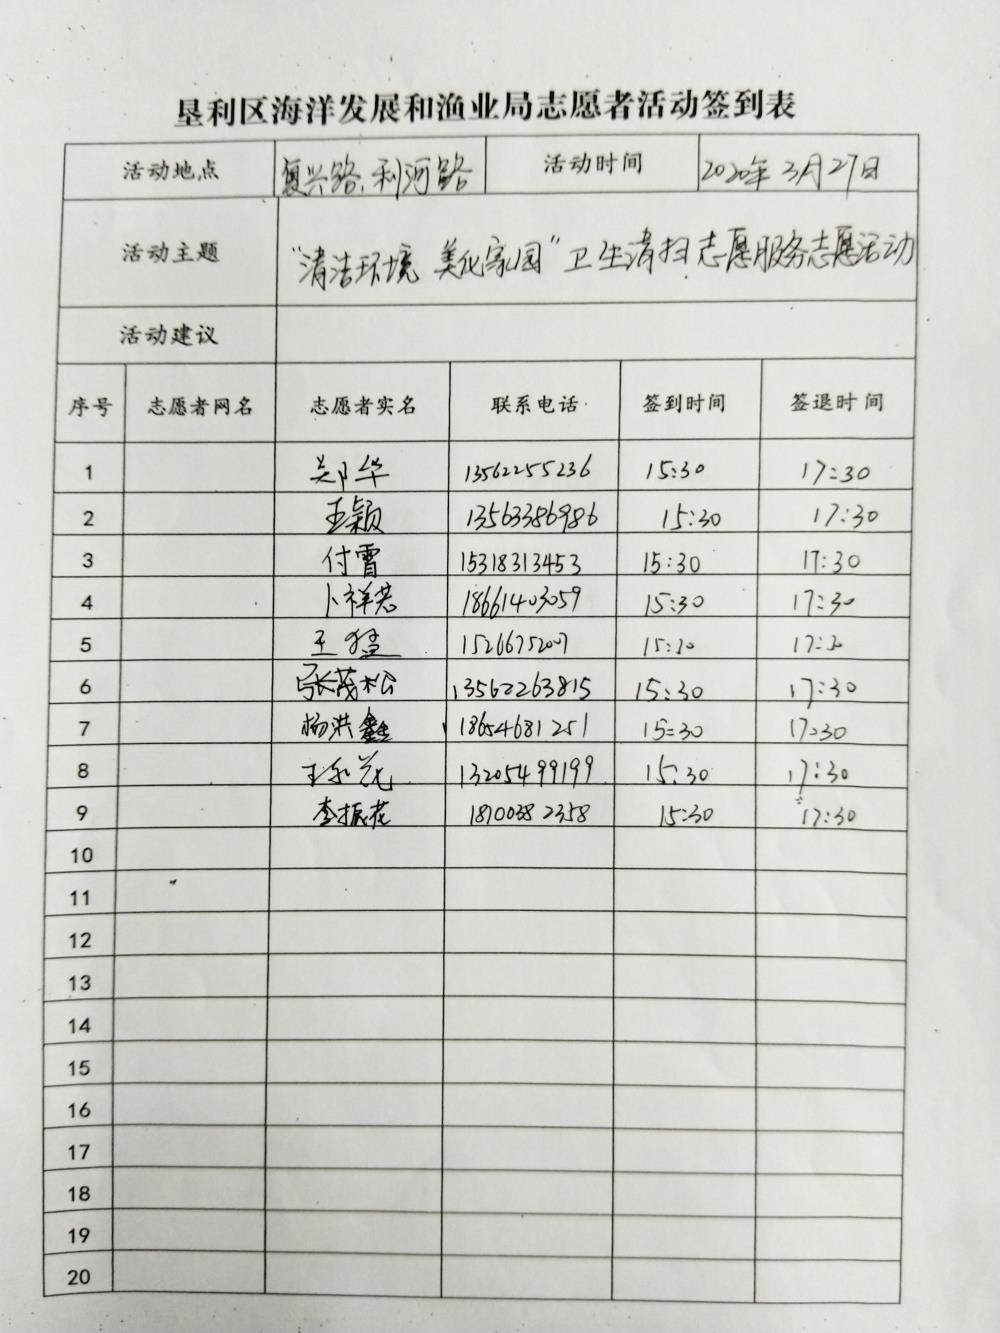 垦利区海洋发展和渔业局志愿者活动签到表
活动地点 复兴路、利河路 活动时间 2020年3月27日
活动主题 “清洁环境 美化家园”卫生清扫志愿服务志愿活动
活动建议
序号 志愿者网名 志愿者实名 联系电话 签到时间 签退时间
1 郑华 13562255236 15:30 17:30
2 王颖 13563386986 15:30 17:30
3 付雷 15318313453 15:30 17:30
4 卜祥若 18661403059 15:30 17:30
5 王猛 15266752007 15:30 17:30
6 张茂松 13562263815 15:30 17:30
7 杨洪鑫 18654681251 15:30 17:30
8 王永花 13205499199 15:30 17:30
9 李振花 18100382358 15:30 17:30
10
11
12
13
14
15
16
17
18
19
20